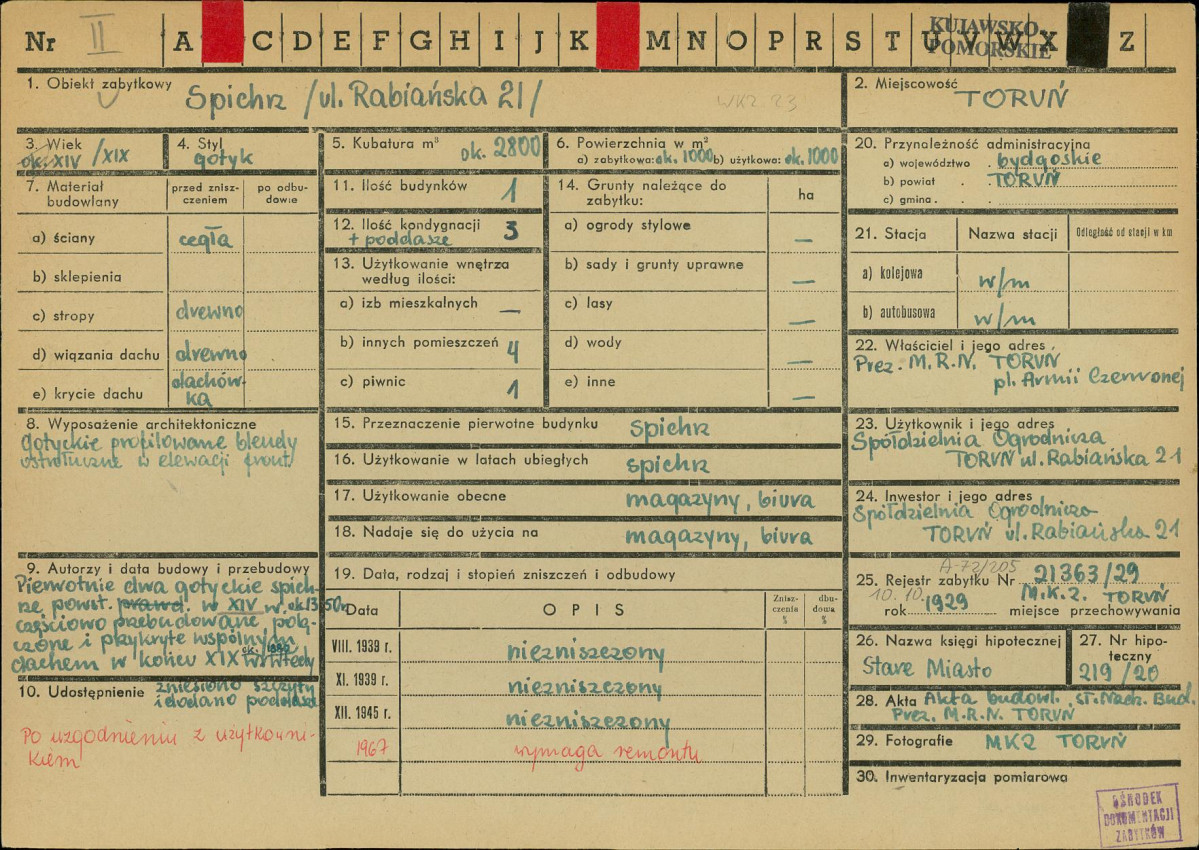 Nr II A C D E F G H I J K M N O P R S T U V W X Z
KUJAWSKO-
POMORSKIE
1. Obiekt zabytkowy Spichrz /ul. Rabiańska 21/
WKZ 23
2. Miejscowość TORUŃ
3. Wiek
ok. XIV /XIX
4. Styl
gotyk
5. Kubatura m³ ok. 2800
6. Powierzchnia w m²
a) zabytkowa: ok. 1000 b) użytkowa: ok. 1000
7. Materiał budowlany
przed zniszczeniem
po odbudowie
a) ściany cegła
b) sklepienia
c) stropy drewno
d) wiązania dachu drewno
e) krycie dachu dachów-
ka
8. Wyposażenie architektoniczne
gotyckie profilowane blendy
ostrołuczne w elewacji front.
9. Autorzy i data budowy i przebudowy
Pierwotnie dwa gotyckie spich-
rze powst. prawd. w XIV w. ok 1350r
częściowo przebudowane, połą-
czone i przykryte wspólnym
dachem w końcu XIX w. ok. 1880 wtedy
zniesiono szczyty
i dodano poddasze
10. Udostępnienie
Po uzgodnieniu z użytkowni-
kiem
11. Ilość budynków 1
12. Ilość kondygnacji 3
+ poddasze
13. Użytkowanie wnętrza
według ilości:
a) izb mieszkalnych —
b) innych pomieszczeń 4
c) piwnic 1
14. Grunty należące do
zabytku:
ha
a) ogrody stylowe —
b) sady i grunty uprawne —
c) lasy —
d) wody —
e) inne —
15. Przeznaczenie pierwotne budynku spichrz
16. Użytkowanie w latach ubiegłych spichrz
17. Użytkowanie obecne magazyny, biura
18. Nadaje się do użycia na magazyny, biura
19. Data, rodzaj i stopień zniszczeń i odbudowy
Data
OPIS
Zniszczenia %
dbudowa %
VIII. 1939 r. niezniszczony
XI. 1939 r. niezniszczony
XII. 1945 r. niezniszczony
1967 wymaga remontu
20. Przynależność administracyjna
a) województwo . bydgoskie
b) powiat . . TORUŃ
c) gmina . .
21. Stacja
Nazwa stacji
Odległość od stacji w km
a) kolejowa w/m
b) autobusowa w/m
22. Właściciel i jego adres .
Prez. M.R.N. TORUŃ
pl. Armii Czerwonej
23. Użytkownik i jego adres
Spółdzielnia Ogrodnicza
TORUŃ ul. Rabiańska 21
24. Inwestor i jego adres
Spółdzielnia Ogrodnicza
TORUŃ ul. Rabiańska 21
A-72/205
25. Rejestr zabytku Nr 21363/29
10.10. M.K.Z. TORUŃ
rok 1929 miejsce przechowywania
26. Nazwa księgi hipotecznej
Stare Miasto
27. Nr hipo-
teczny
219/20
28. Akta Akta budowl. st. Nadz. Bud.
Prez. M.R.N. TORUŃ
29. Fotografie MKZ TORUŃ
30. Inwentaryzacja pomiarowa
OŚRODEK
DOKUMENTACJI
ZABYTKÓW